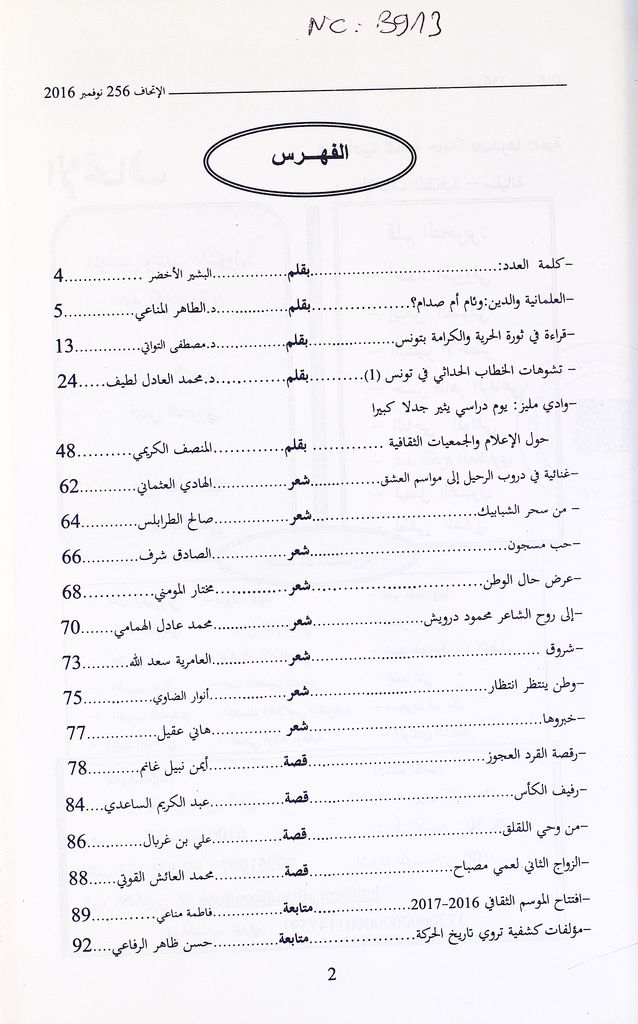 NC: B913
الإتحاف 256 نوفمبر 2016
الفهــرس
-كلمة العدد:........................بقلم............البشير الأخضر ............4
-العلمانية والدين:وئام أم صدام؟................بقلم............د.الطاهر المناعي.............5
-قراءة في ثورة الحرية والكرامة بتونس..............بقلم...........د.مصطفى التواتي.............13
- تشوهات الخطاب الحداثي في تونس (1)...........بقلم...........د.محمد العادل لطيف.....24
-وادي مليز: يوم دراسي يثير جدلا كبيرا
حول الإعلام والجمعيات الثقافية ............. بقلم...........المنصف الكريمي..........48
-غنائية في دروب الرحيل إلى مواسم العشق..........شعر............الهادي العثماني............62
- من سحر الشبابيك........................شعر............صالح الطرابلس............64
-حب مسجون........................شعر............الصادق شرف............66
-عرض حال الوطن........................شعر............مختار المومني............68
-إلى روح الشاعر محمود درويش................شعر...........محمد عادل الهمامي.......70
-شروق ........................شعر............العامرية سعد الله.........73
-وطن ينتظر انتظار........................شعر............أنوار الضاوي............75
-خبروها........................شعر ............هاني عقيل............77
-رقصة القرد العجوز........................قصة............أيمن نبيل غانم..........78
-رفيف الكأس........................قصة............عبد الكريم الساعدي....84
-من وحي اللقلق........................قصة............علي بن غربال............86
-الزواج الثاني لعمي مصباح................قصة............محمد العائش القوتي......88
-افتتاح الموسم الثقافي 2016-2017................متابعة...........فاطمة مناعي............89
-مؤلفات كشفية تروي تاريخ الحركة..............متابعة...........حسن ظاهر الرفاعي....92
2